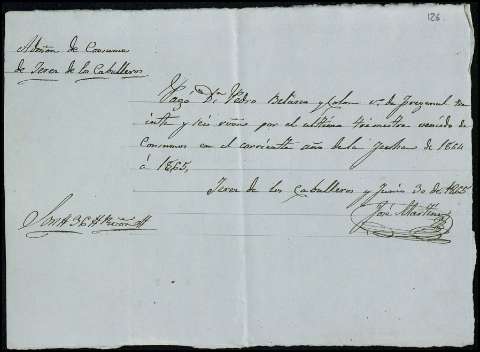 126.
Admon de Consumos
de Jerez de los Caballeros
Pagó Dn Pedro Velasco y Colon vo. de Fregenal
y seis rvon por el ultimo trimestre vencido de
Consumos en el corriente año de la fecha de 1864
á 1865,
Jerez de los Caballeros y Junio 30 de 1865
José Martinez
Son # 36 #